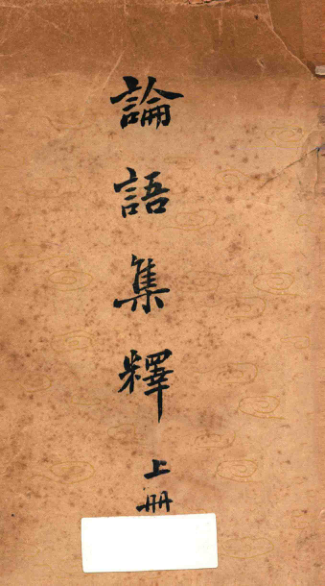 論語集釋
上册